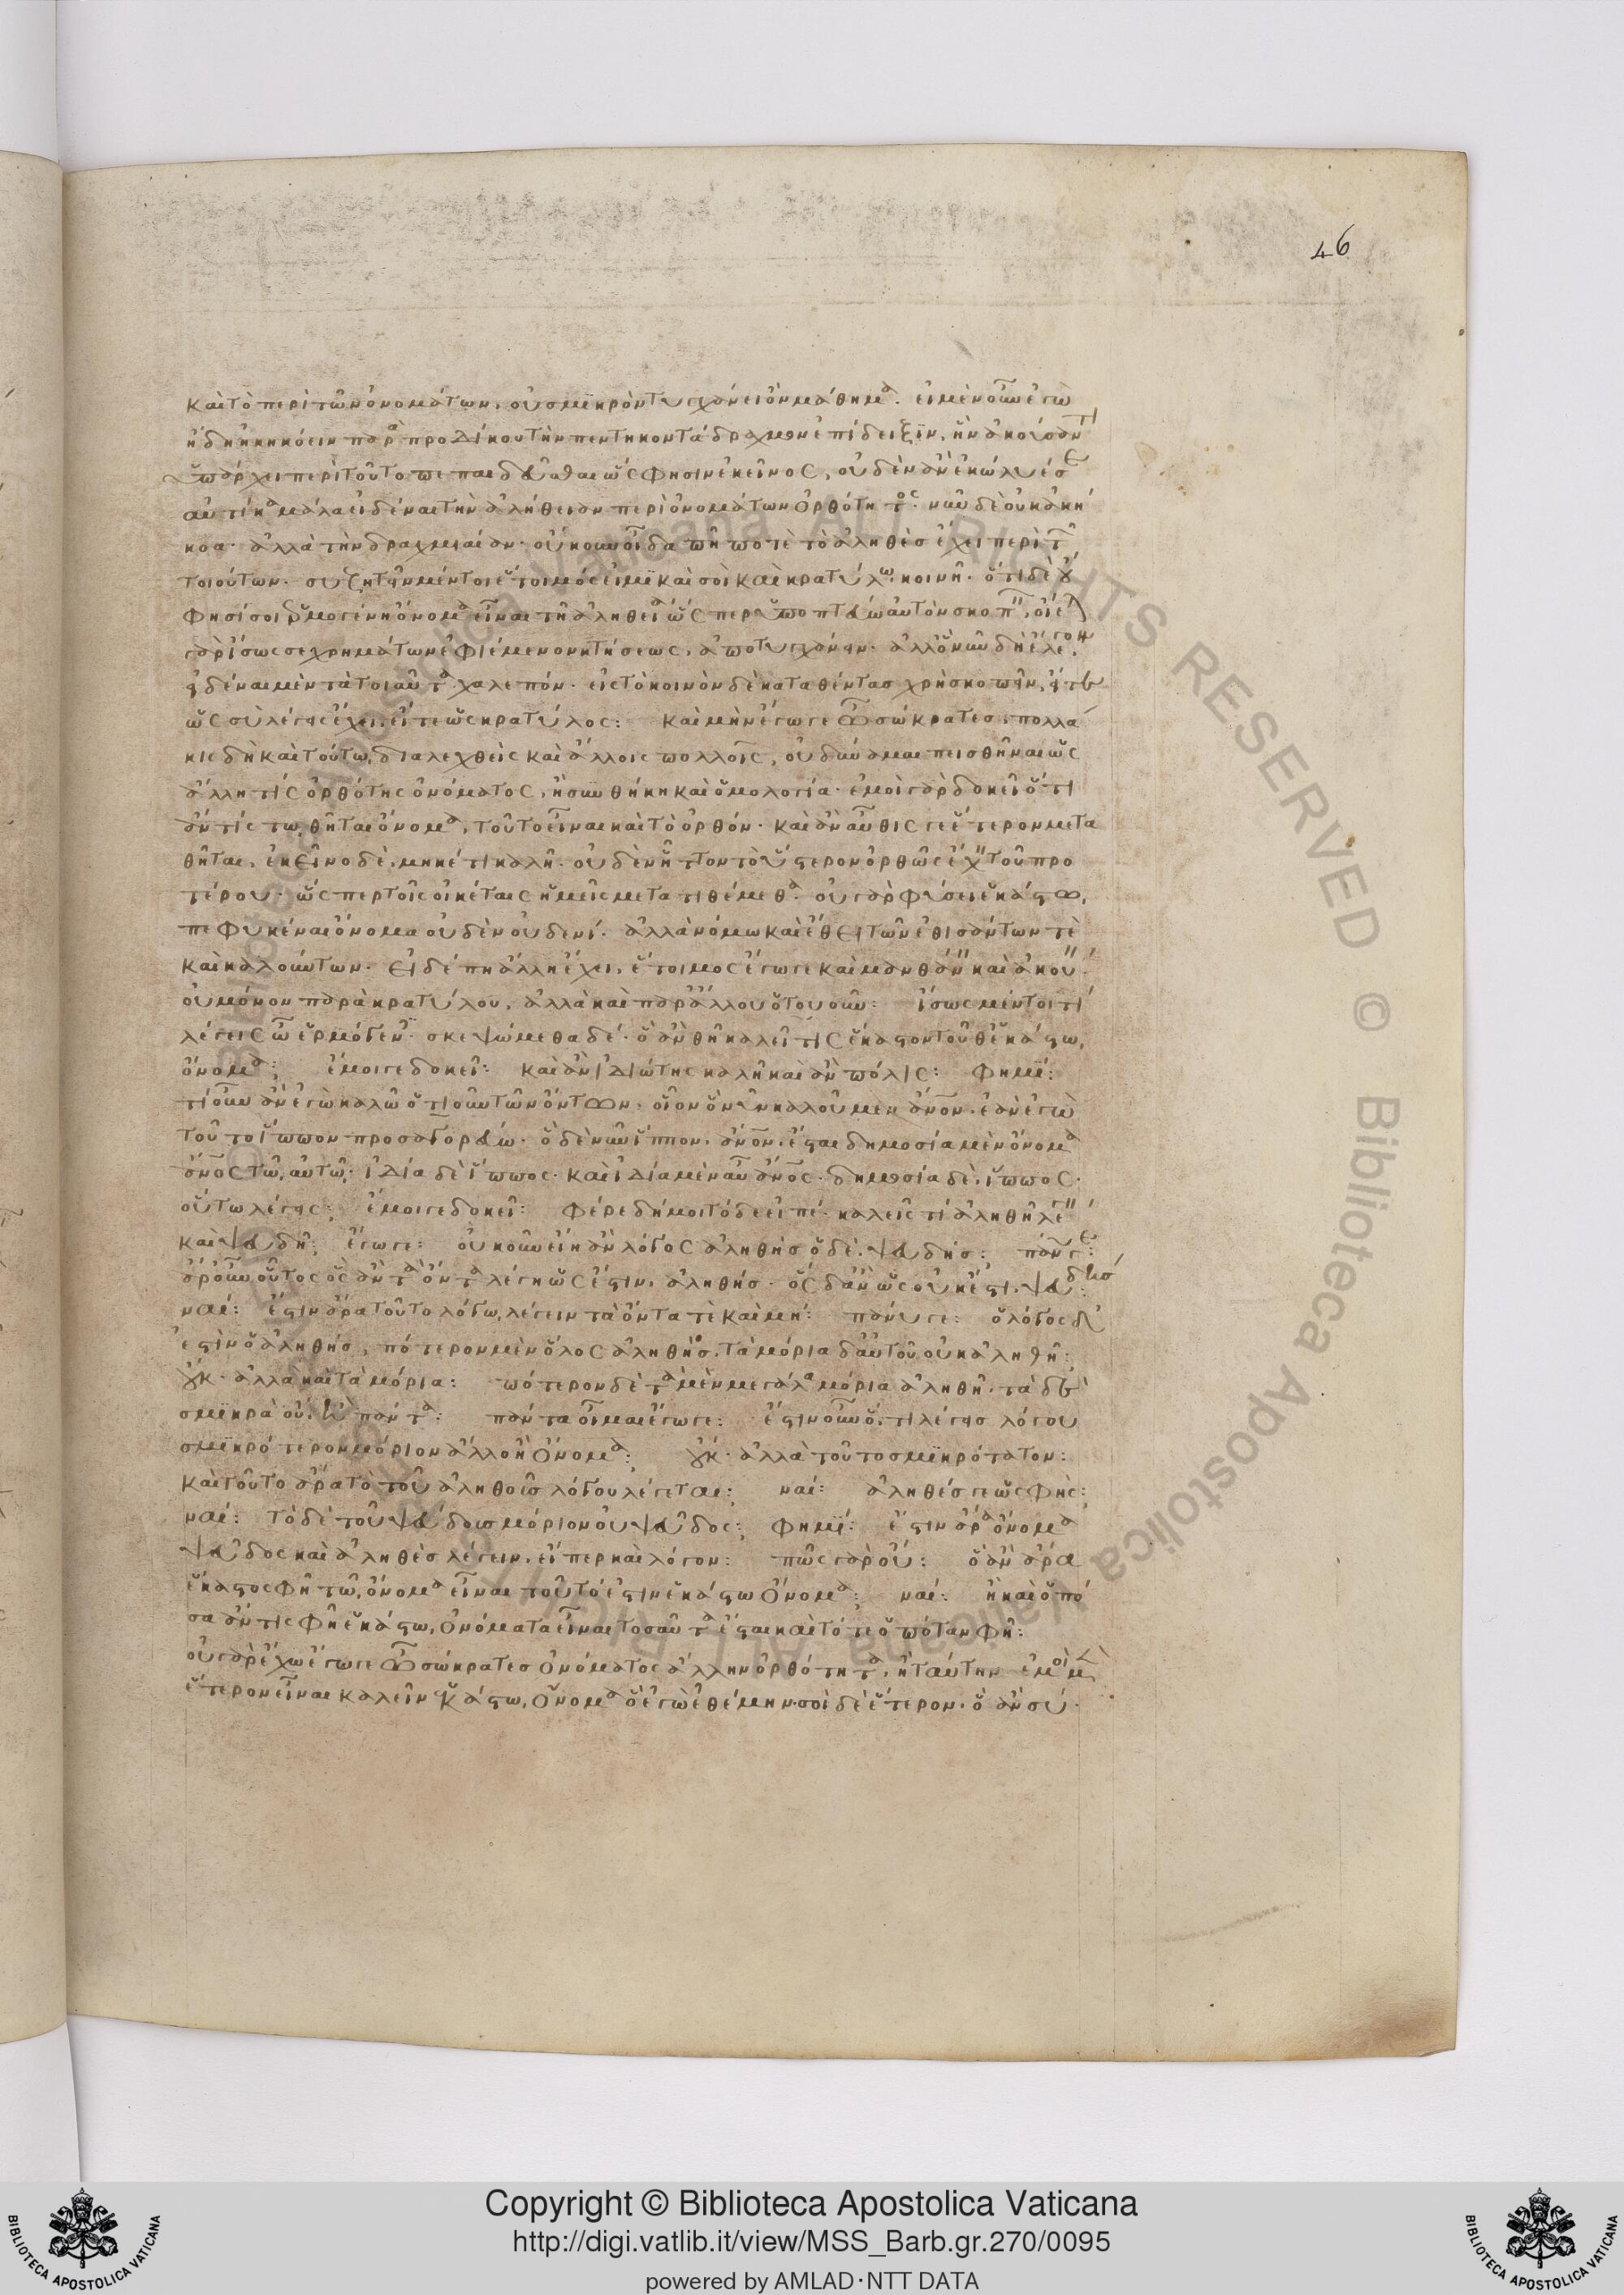 46
καὶ τὸ περὶ τῶν ὀνομάτων, οὐ σμικρὸν τυγχάνει ὂν μάθημα. εἰ μὲν οὖν ἐγὼ
ἤδη ἠκηκόειν παρὰ προδίκου τὴν πεντηκοντάδραχμον ἐπίδειξιν, ἣν ἀκούσαντι
ὑπάρχει περὶ τοῦτο πεπαιδεῦσθαι ὥς φησιν ἐκεῖνος, οὐδὲν ἂν ἐκώλυέ σε
αὐτίκα μάλα εἰδέναι τὴν ἀλήθειαν περὶ ὀνομάτων ὀρθότητος. νῦν δὲ οὐκ ἀκή
κοα. ἀλλὰ τὴν δραχμιαίαν. οὔκουν οἶδα πῆ ποτὲ τὸ ἀληθὲς ἔχει περὶ τῶν
τοιούτων. συζητεῖν μέντοι ἕτοιμός εἰμι καὶ σοὶ καὶ κρατύλῳ κοινῇ. ὅτι δὲ οὔ
φησί σοι ἑρμογένη ὄνομα εἶναι τῇ ἀληθείᾳ ὥσπερ ὑποπτεύω αὐτὸν σκώπτειν, οἴεται
γὰρ ἴσως σε χρημάτων ἐφιέμενον κτήσεως, ἀποτυγχάνειν. ἀλλ' ὃ νῦν δὴ ἔλεγον
εἰδέναι μὲν τὰ τοιαῦτα χαλεπόν. εἰς τὸ κοινὸν δὲ καταθέντας χρὴ σκοπεῖν, εἴτε
ὡς σὺ λέγεις ἔχει, εἴτε ὡς κρατύλος: καὶ μὴν ἔγωγε ὦ σώκρατες, πολλά
κις δὴ καὶ τούτῳ διαλεχθεὶς καὶ ἄλλοις πολλοῖς, οὐ δύναμαι πεισθῆναι ὡς
ἄλλη τίς ὀρθότης ὀνόματος, ἢ συνθήκη καὶ ὁμολογία. ἐμοὶ γὰρ δοκεῖ ὅ τι
ἄν τίς τῳ θῆται ὄνομα, τοῦτο εἶναι καὶ τὸ ὀρθόν. καὶ ἂν αὖθις γε ἕτερον μετα
θῆται, ἐκεῖνο δὲ, μηκέτι καλῇ. οὐδὲν ἧττον τὸ ὕστερον ὀρθῶς ἔχειν τοῦ προ
τέρου. ὥσπερ τοῖς οἰκέταις ἡμεῖς μετατιθέμεθα. οὐ γὰρ φύσει ἑκάστῳ,
πεφυκέναι ὄνομα οὐδὲν οὐδενί. ἀλλὰ νόμῳ καὶ ἔθει τῶν ἐθισάντων τὲ
καὶ καλούντων. εἰ δέ πη ἄλλη ἔχει, ἕτοιμος ἔγωγε καὶ μανθάνειν καὶ ἀκούειν.
οὐ μόνον παρὰ κρατύλου, ἀλλὰ καὶ παρ' ἄλλου ὁτουοῦν: ἴσως μέντοι τὶ
λέγεις ὦ ἑρμόγενες. σκεψώμεθα δέ. ὃ ἂν θῇ καλεῖν τὶς ἕκαστον τοῦθ' ἑκάστῳ,
ὄνομα; ἔμοιγε δοκεῖ: καὶ ἂν ἰδιώτης καλῇ καὶ ἂν πόλις: φημί:
τί οὖν ἂν ἐγὼ καλῶ ὁτιοῦν τῶν ὄντων, οἷον ὃ νῦν καλοῦμεν ἄνον. ἐὰν ἐγὼ
τοῦτο ἵππον προσαγορεύω. ὃ δὲ νῦν ἵππον. ἄνον. ἔσται δημοσία μὲν ὄνομα
ἄνος τῷ αὐτῷ. ἰδία δὲ ἵππος. καὶ ἰδία μὲν αὖ ἄνος. δημοσία δὲ, ἵππος.
οὕτω λέγεις; ἔμοιγε δοκεῖ: φέρε δή μοι τόδε εἰπέ. καλεῖς τί ἀληθῆ λέγειν
καὶ ψευδῆ; ἔγωγε: οὐκοῦν εἴη ἂν λόγος ἀληθὴς ὁ δὲ, ψευδής: πάνυ γε:
ἆρ' οὖν οὗτος ὃς ἂν τὰ ὄντα λέγῃ ὡς ἔστιν, ἀληθής. ὃς δ' ἂν ὡς οὐκ ἔστι, ψευδής:
ναί: ἔστιν ἄρα τοῦτο λόγῳ, λέγειν τὰ ὄντα τὲ καὶ μή: πάνυ γε: ὁ λόγος δ'
ἐστὶν ὁ ἀληθής, πότερον μὲν ὅλος ἀληθής. τὰ μόρια δ' αὐτοῦ οὐκ ἀληθῆ;
οὔκ. ἀλλὰ καὶ τὰ μόρια: πότερον δὲ τὰ μὲν μεγάλα μόρια ἀληθῆ. τὰ δὲ
σμικρὰ οὔ. ἢ πάντα: πάντα οἶμαι ἔγωγε: ἔστιν οὖν ὅ, τι λέγεις λόγου
σμικρότερον μόριον ἄλλο ἢ ὄνομα; οὔκ. ἀλλὰ τοῦτο σμικρότατον:
καὶ τοῦτο ἄρα τὸ τοῦ ἀληθοῦς λόγου λέγεται; ναί: ἀληθές γε ὡς φής;
ναί: τὸ δὲ τοῦ ψεύδους μόριον οὐ ψεῦδος; φημί: ἔστιν ἄρα ὄνομα
ψεῦδος καὶ ἀληθὲς λέγειν, εἴπερ καὶ λόγον: πῶς γὰρ οὔ: ὃ ἂν ἄρα
ἕκαστος φῇ τῳ, ὄνομα εἶναι τοῦτό ἐστιν ἑκάστῳ ὄνομα; ναί: ἦ καὶ ὁπό
σα ἄν τις φῇ ἑκάστῳ, ὀνόματα εἶναι τοσαῦτα ἔσται καὶ τότε ὁπόταν φῇ:
οὐ γὰρ ἔχω ἔγωγε ὦ σώκρατες ὀνόματος ἄλλην ὀρθότητα, ἢ ταύτην ἐμοὶ μὲν
ἕτερον εἶναι καλεῖν ἑκάστῳ, ὄνομα ὃ ἐγὼ ἐθέμην. σοὶ δὲ ἕτερον. ὃ ἂν σύ.
Copyright © Biblioteca Apostolica Vaticana
http://digi.vatlib.it/view/MSS_Barb.gr.270/0095
powered by AMLAD·NTT DATA